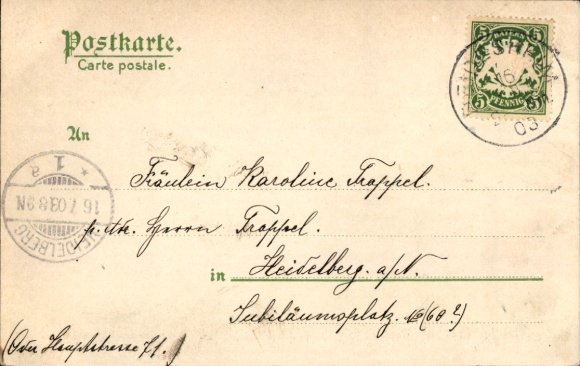 Postkarte.
Carte postale.
5 BAYERN 5
5 PFENNIG 5
16
03
An
1 a
16.7.03.8-9N
HEIDELBERG
Fräulein Karoline Trappel.
p. Adr. Herrn Trappel.
in Heidelberg. a/N.
Jubiläumsplatz. (68?)
(Oder Hauptstrasse 71.)